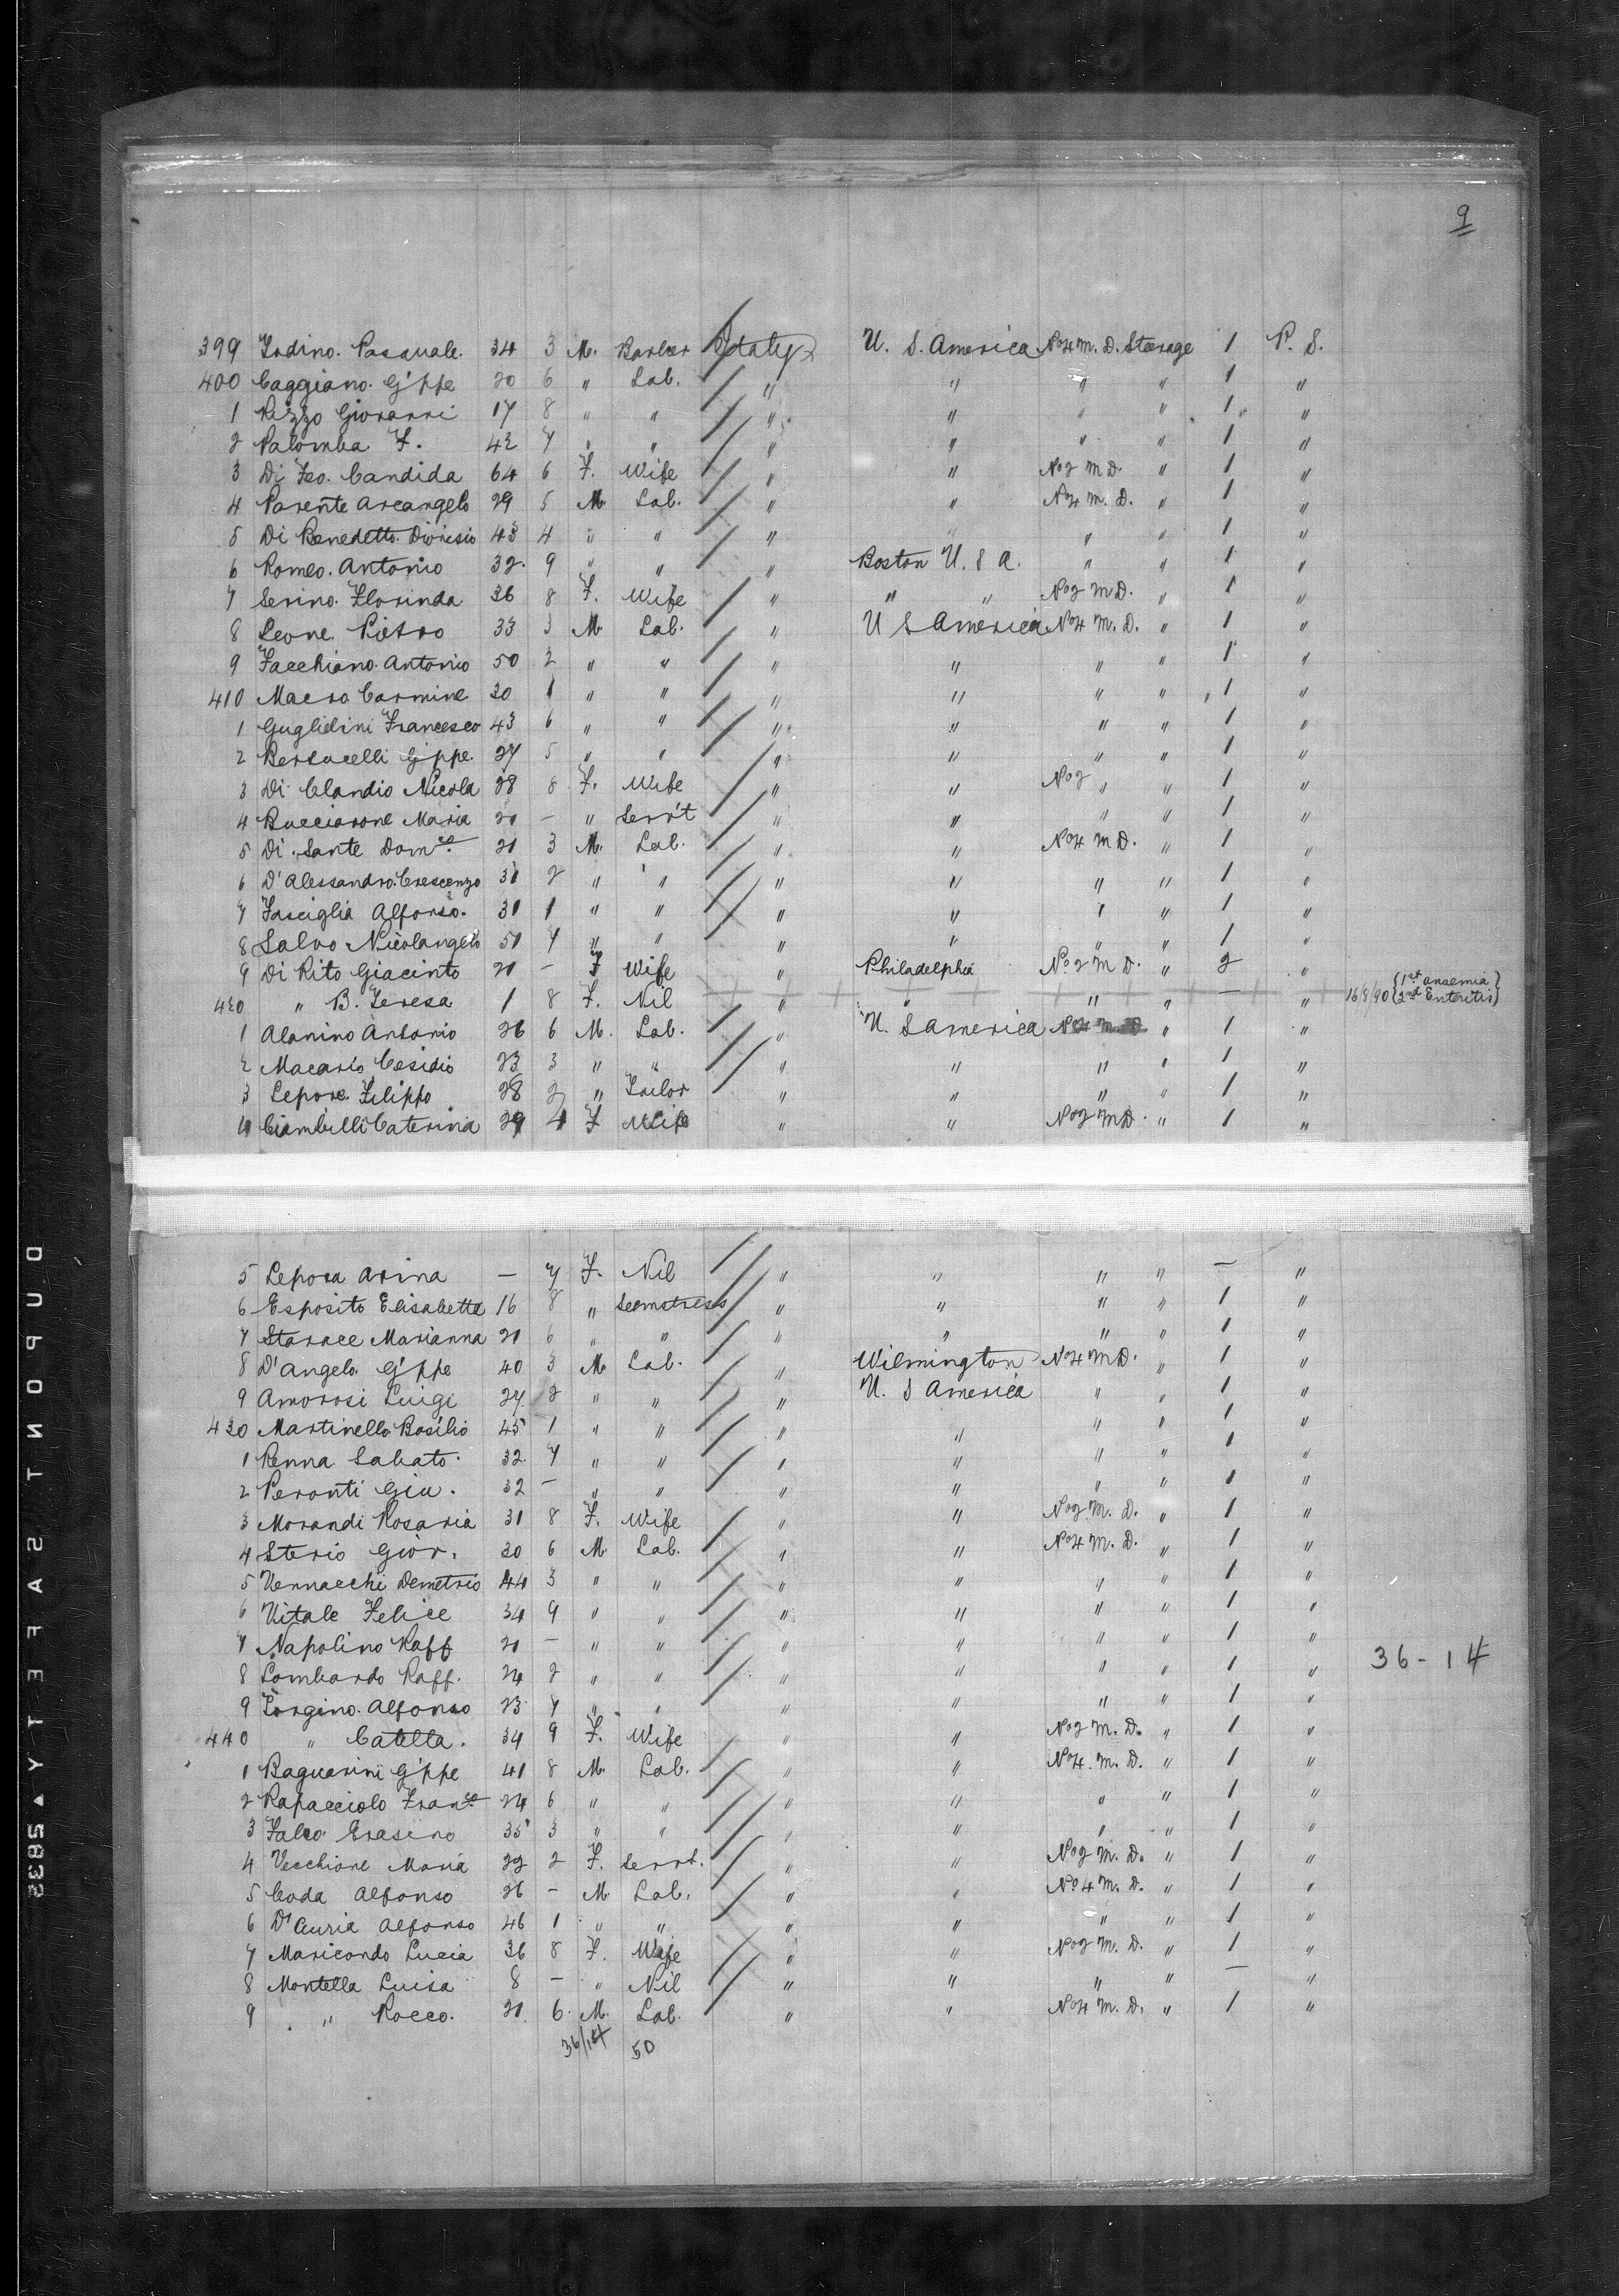 9
399 Iodino. Pasquale. 34 3 M. Barber Italy U. S. America No 4 M. D. Steerage 1 P. S.
400 Caggiano. G'ppe 20 6 " Lab. " " " " 1 "
1 Rizzo Giovanni 17 8 " " " " " " 1 "
2 Palomba F. 42 7 " " " " " " 1 "
3 Di Feo. Candida 64 6 F. Wife " " No 2 M D. " 1 "
4 Parente Arcangelo 29 5 M. Lab. " " No 4 M. D. " 1 "
5 Di Benedetto. Dionisio 43 4 " " " " " " 1 "
6 Romeo. Antonio 32. 9 " " " Boston U. S A. " " 1 "
7 Serino. Florinda 36 8 F. Wife " " " No 2 M D. " 1 "
8 Leone. Pietro 33 3 M. Lab. " U S America No 4 M. D. " 1 "
9 Facchiano. Antonio 50 2 " " " " " " 1 "
410 Macro Carmine 30 1 " " " " " " 1 "
1 Guglielini Francesco 43 6 " " " " " " 1 "
2 Bersucelli G'ppe. 27 5 " " " " " " 1 "
3 Di Claudio Nicola 28 8 F. Wife " " No 2 " " 1 "
4 Bucciarone Maria 20 — " Serv't " " " " 1 "
5 Di Sante Dom.co 21 3 M. Lab. " " No 4 M D. " 1 "
6 D'Alessandro. Crescenzo 31 2 " " " " " " 1 "
7 Fasciglia Alfonso. 31 1 " " " " " " 1 "
8 Salvo Nicolangelo 51 7 " " " " " " 1 "
9 Di Rito Giacinto 21 — F Wife " Philadelphia No 2 M D. " 2 "
420 " B. Teresa 1 8 F. Nil " " " " — " 16/8/90 {1st anaemia} {2nd Enteritis}
1 Alanino Antonio 26 6 M. Lab. " U. S America No 4 M D " 1 "
2 Macario Cesidio 23 3 " " " " " " 1 "
3 Lepore. Filippo 28 2 " Tailor " " " " 1 "
4 Ciambelli Caterina 29 4 F Wife " " No 2 M D. " 1 "
5 Lepora Anna — 7 F. Nil " " " " — "
6 Esposito Elisabetta 16 8 " Seemstress " " " " 1 "
7 Starace Marianna 21 6 " " " " " " 1 "
8 D'Angelo. G'ppe 40 3 M. Lab. " Wilmington No 4 M D. " 1 "
9 Amorosi Luigi 27. 2 " " " U. S America " " 1 "
430 Martinello Basilio 45 1 " " " " " " 1 "
1 Penna Sabato. 32. 7 " " " " " " 1 "
2 Peronti Giu. 32 — " " " " " " 1 "
3 Morandi Rosaria 31 8 F. Wife " " No 2 M. D. " 1 "
4 Sterio Giov. 30 6 M. Lab. " " No 4 M. D. " 1 "
5 Vernacchi Demetrio 44 3 " " " " " " 1 "
6 Vitale Felice 34 9 " " " " " " 1 "
7 Napolino Raff 21 — " " " " " " 1 "
8 Lombardo Raff. 24 2 " " " " " " 1 " 36 - 14
9 Torgino. Alfonso 23 7 " " " " " " 1 "
440 " Catella. 34 9 F. Wife " " No 2 M. D. " 1 "
1 Baguarini G'ppe 41 8 M. Lab. " " No 4. M. D. " 1 "
2 Rapacciolo Fran.co 24 6 " " " " " " 1 "
3 Falco Erasino 35 3 " " " " " " 1 "
4 Vecchione Maria 22 2 F. Servt. " " No 2 M. D. " 1 "
5 Coda Alfonso 26 — M. Lab. " " No 4 M. D. " 1 "
6 D'Auria Alfonso 46 1 " " " " " " 1 "
7 Maricondo Lucia 36 8 F. Wife " " No 2 M. D. " 1 "
8 Montella Luisa 8 — " Nil " " " " — "
9 " Rocco. 21. 6. M. Lab. " " No 4 M. D. " 1 "
36/14 50
DUPONT SAFETY ▲ 5832